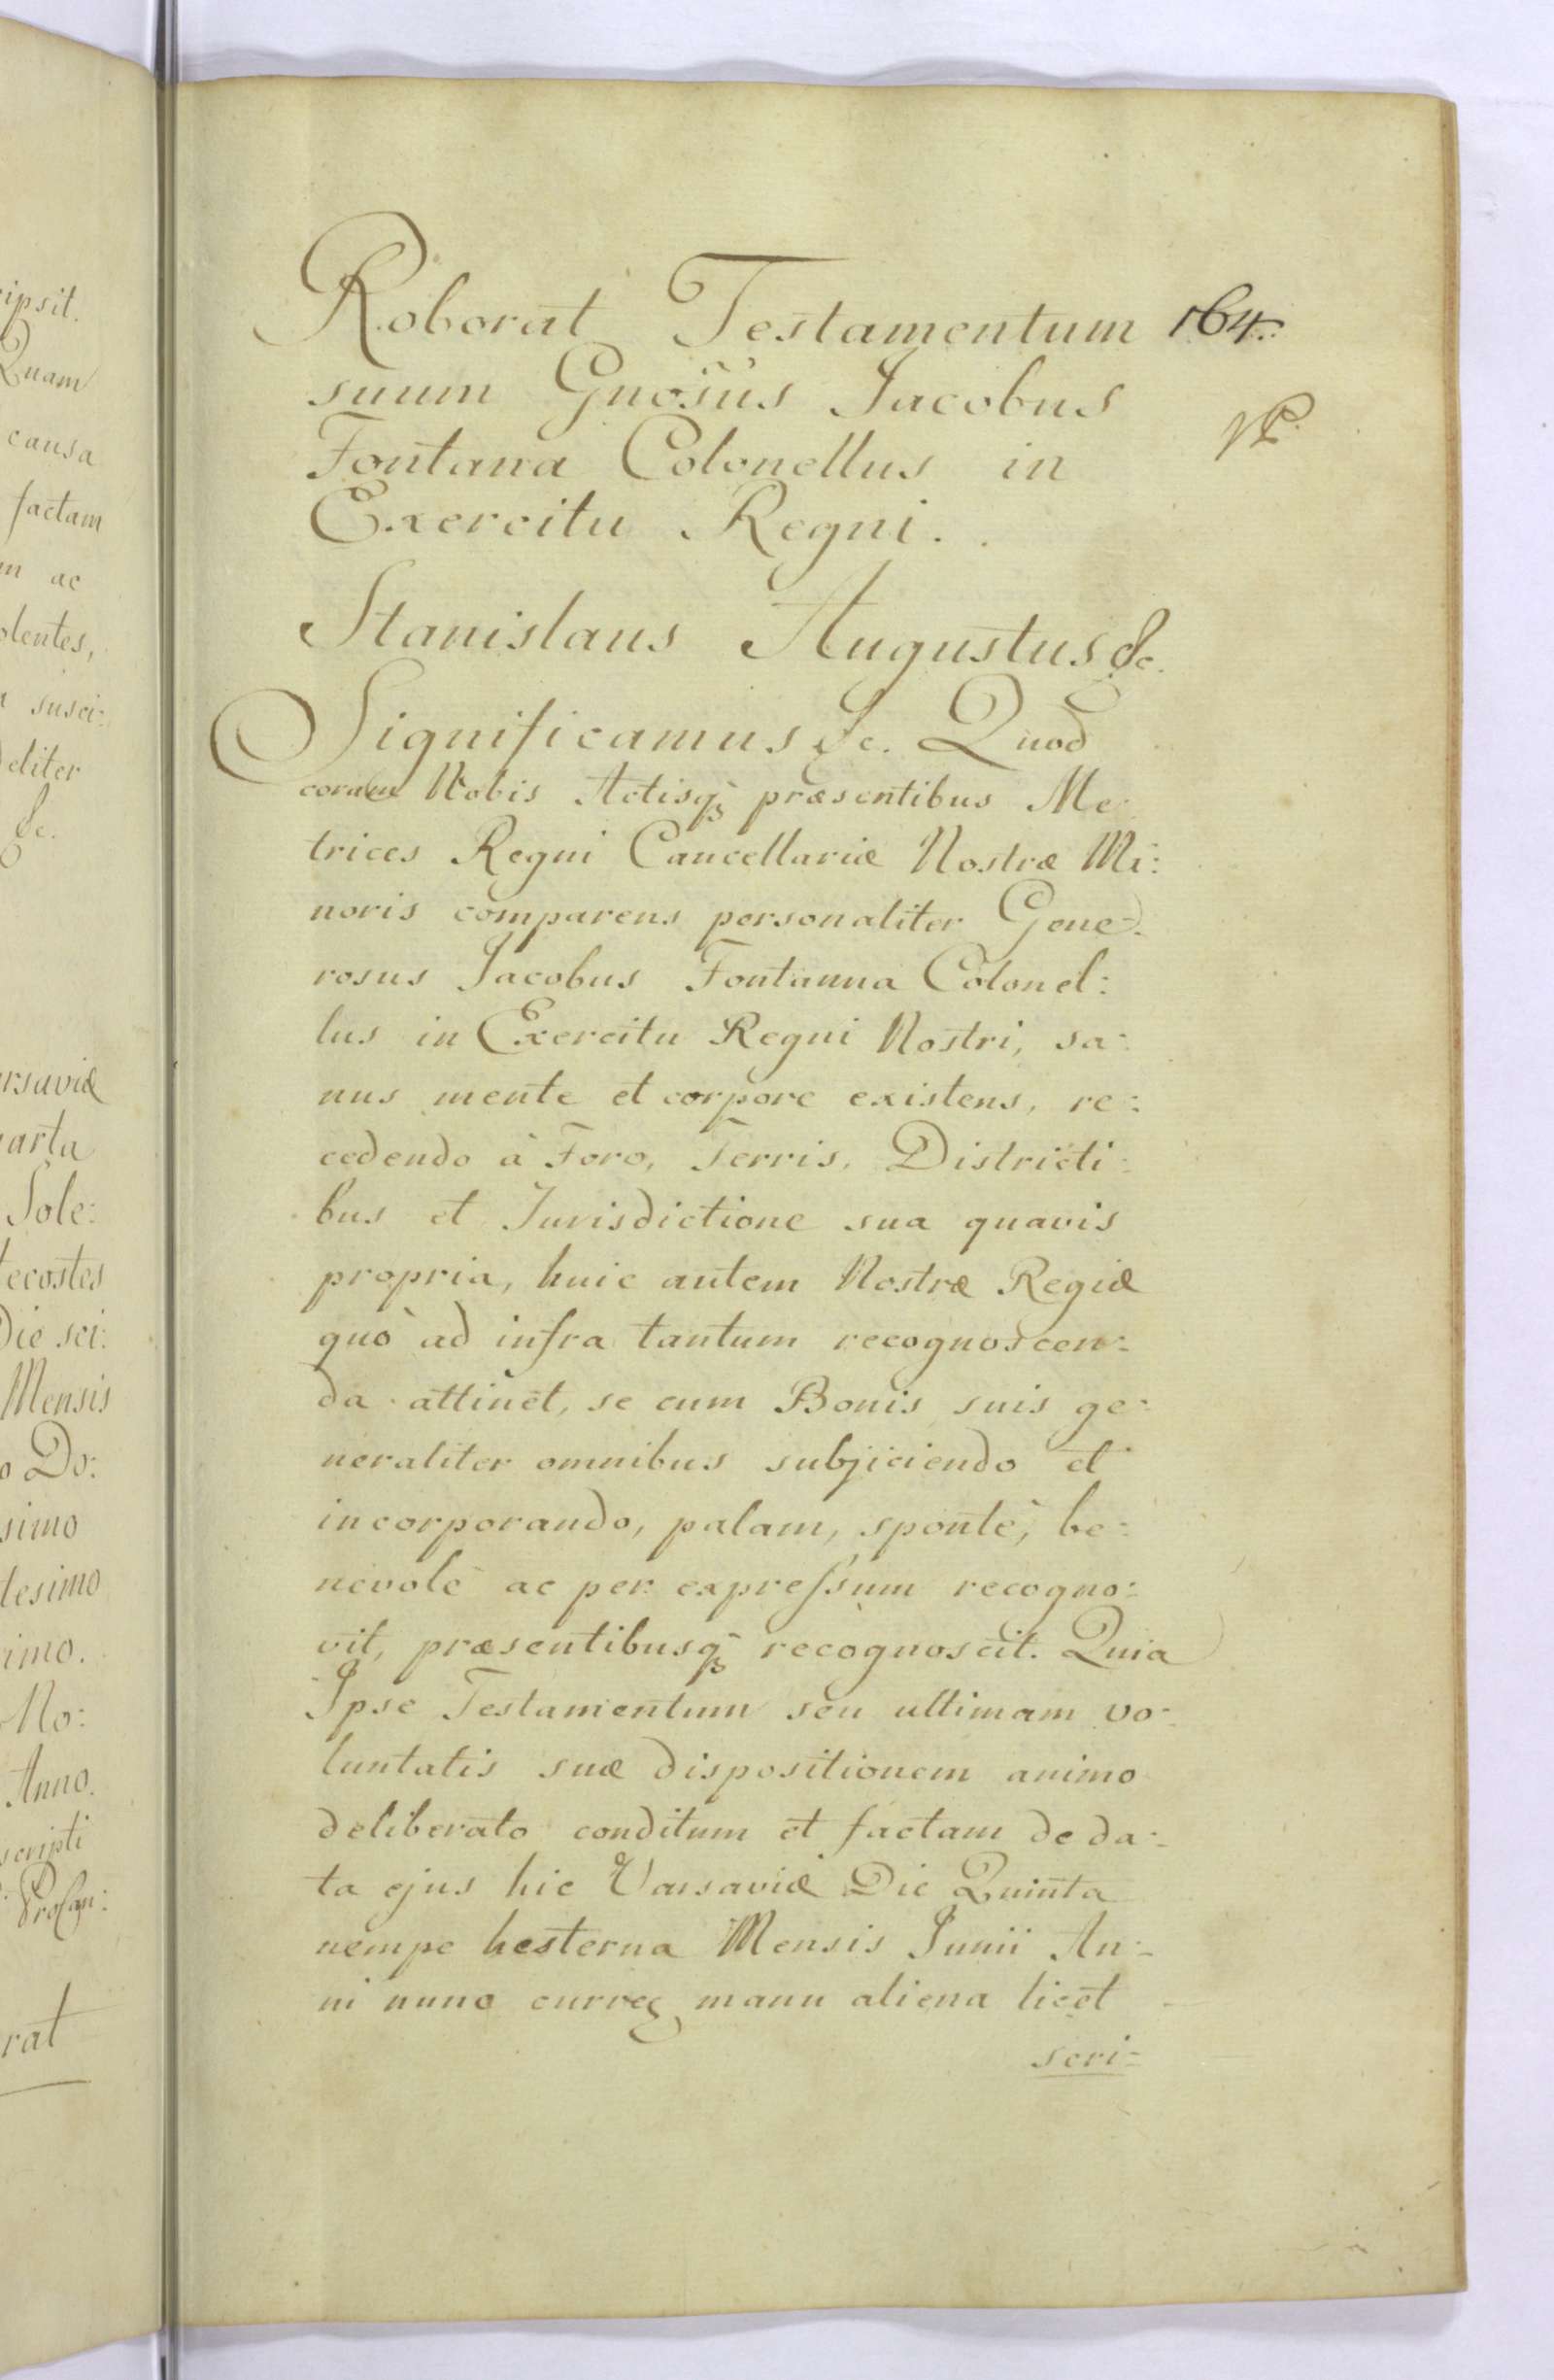 ipsit.
Quam
causa
factam
m ac
olentes,
a susci:
deliter
&c.
arsaviæ
arta
Sole:
tecostes
Die sci:
Mensis
o Do:
simo
desimo
imo.
No:
Anno.
scripti
rat
Roborat Testamentum 164.
suum Gnosus Jacobus
Fontana Colonellus in
Exercitu Regni.
Stanislaus Augustus &c.
Significamus &c. Quod
coram Nobis Actisq; præsentibus Me
trices Regni Cancellariæ Nostræ Mi:
noris comparens personaliter Gene:
rosus Jacobus Fontanna Colonel:
lus in Exercitu Regni Nostri, sa:
nus mente et corpore existens, re:
cedendo à Foro, Terris, Districti:
bus et Jurisdictione sua quavis
propria, huic autem Nostræ Regiæ
quò ad infra tantum recognoscen:
da attinet, se cum Bonis suis ge:
neraliter omnibus subjiciendo et
incorporando, palam, spontè, be:
nevolè ac per expressum recogno:
vit, præsentibusq; recognoscit. Quia
Ipse Testamentum seu ultimam vo:
luntatis suæ dispositionem animo
deliberato conditum et factam de da:
ta ejus hic Varsaviæ Die Quinta
nempe hesterna Mensis Junii An:
ni nunc curren manu aliena licet
scri: